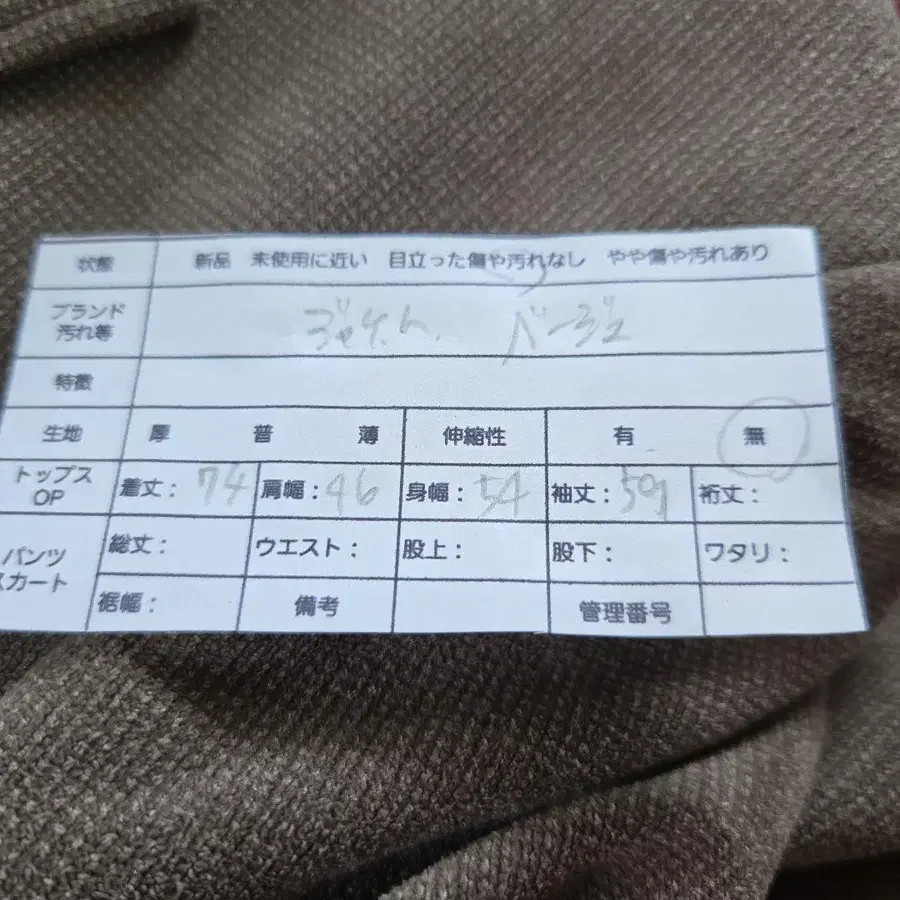 状態 新品 未使用に近い 目立った傷や汚れなし やや傷や汚れあり
ブランド
汚れ等
ジャケット ベージュ
特徴
生地 厚 普 薄 伸縮性 有 無
トップス
OP
着丈: 74 肩幅: 46 身幅: 54 袖丈: 59 裄丈:
パンツ
スカート
総丈: ウエスト: 股上: 股下: ワタリ:
裾幅: 備考 管理番号